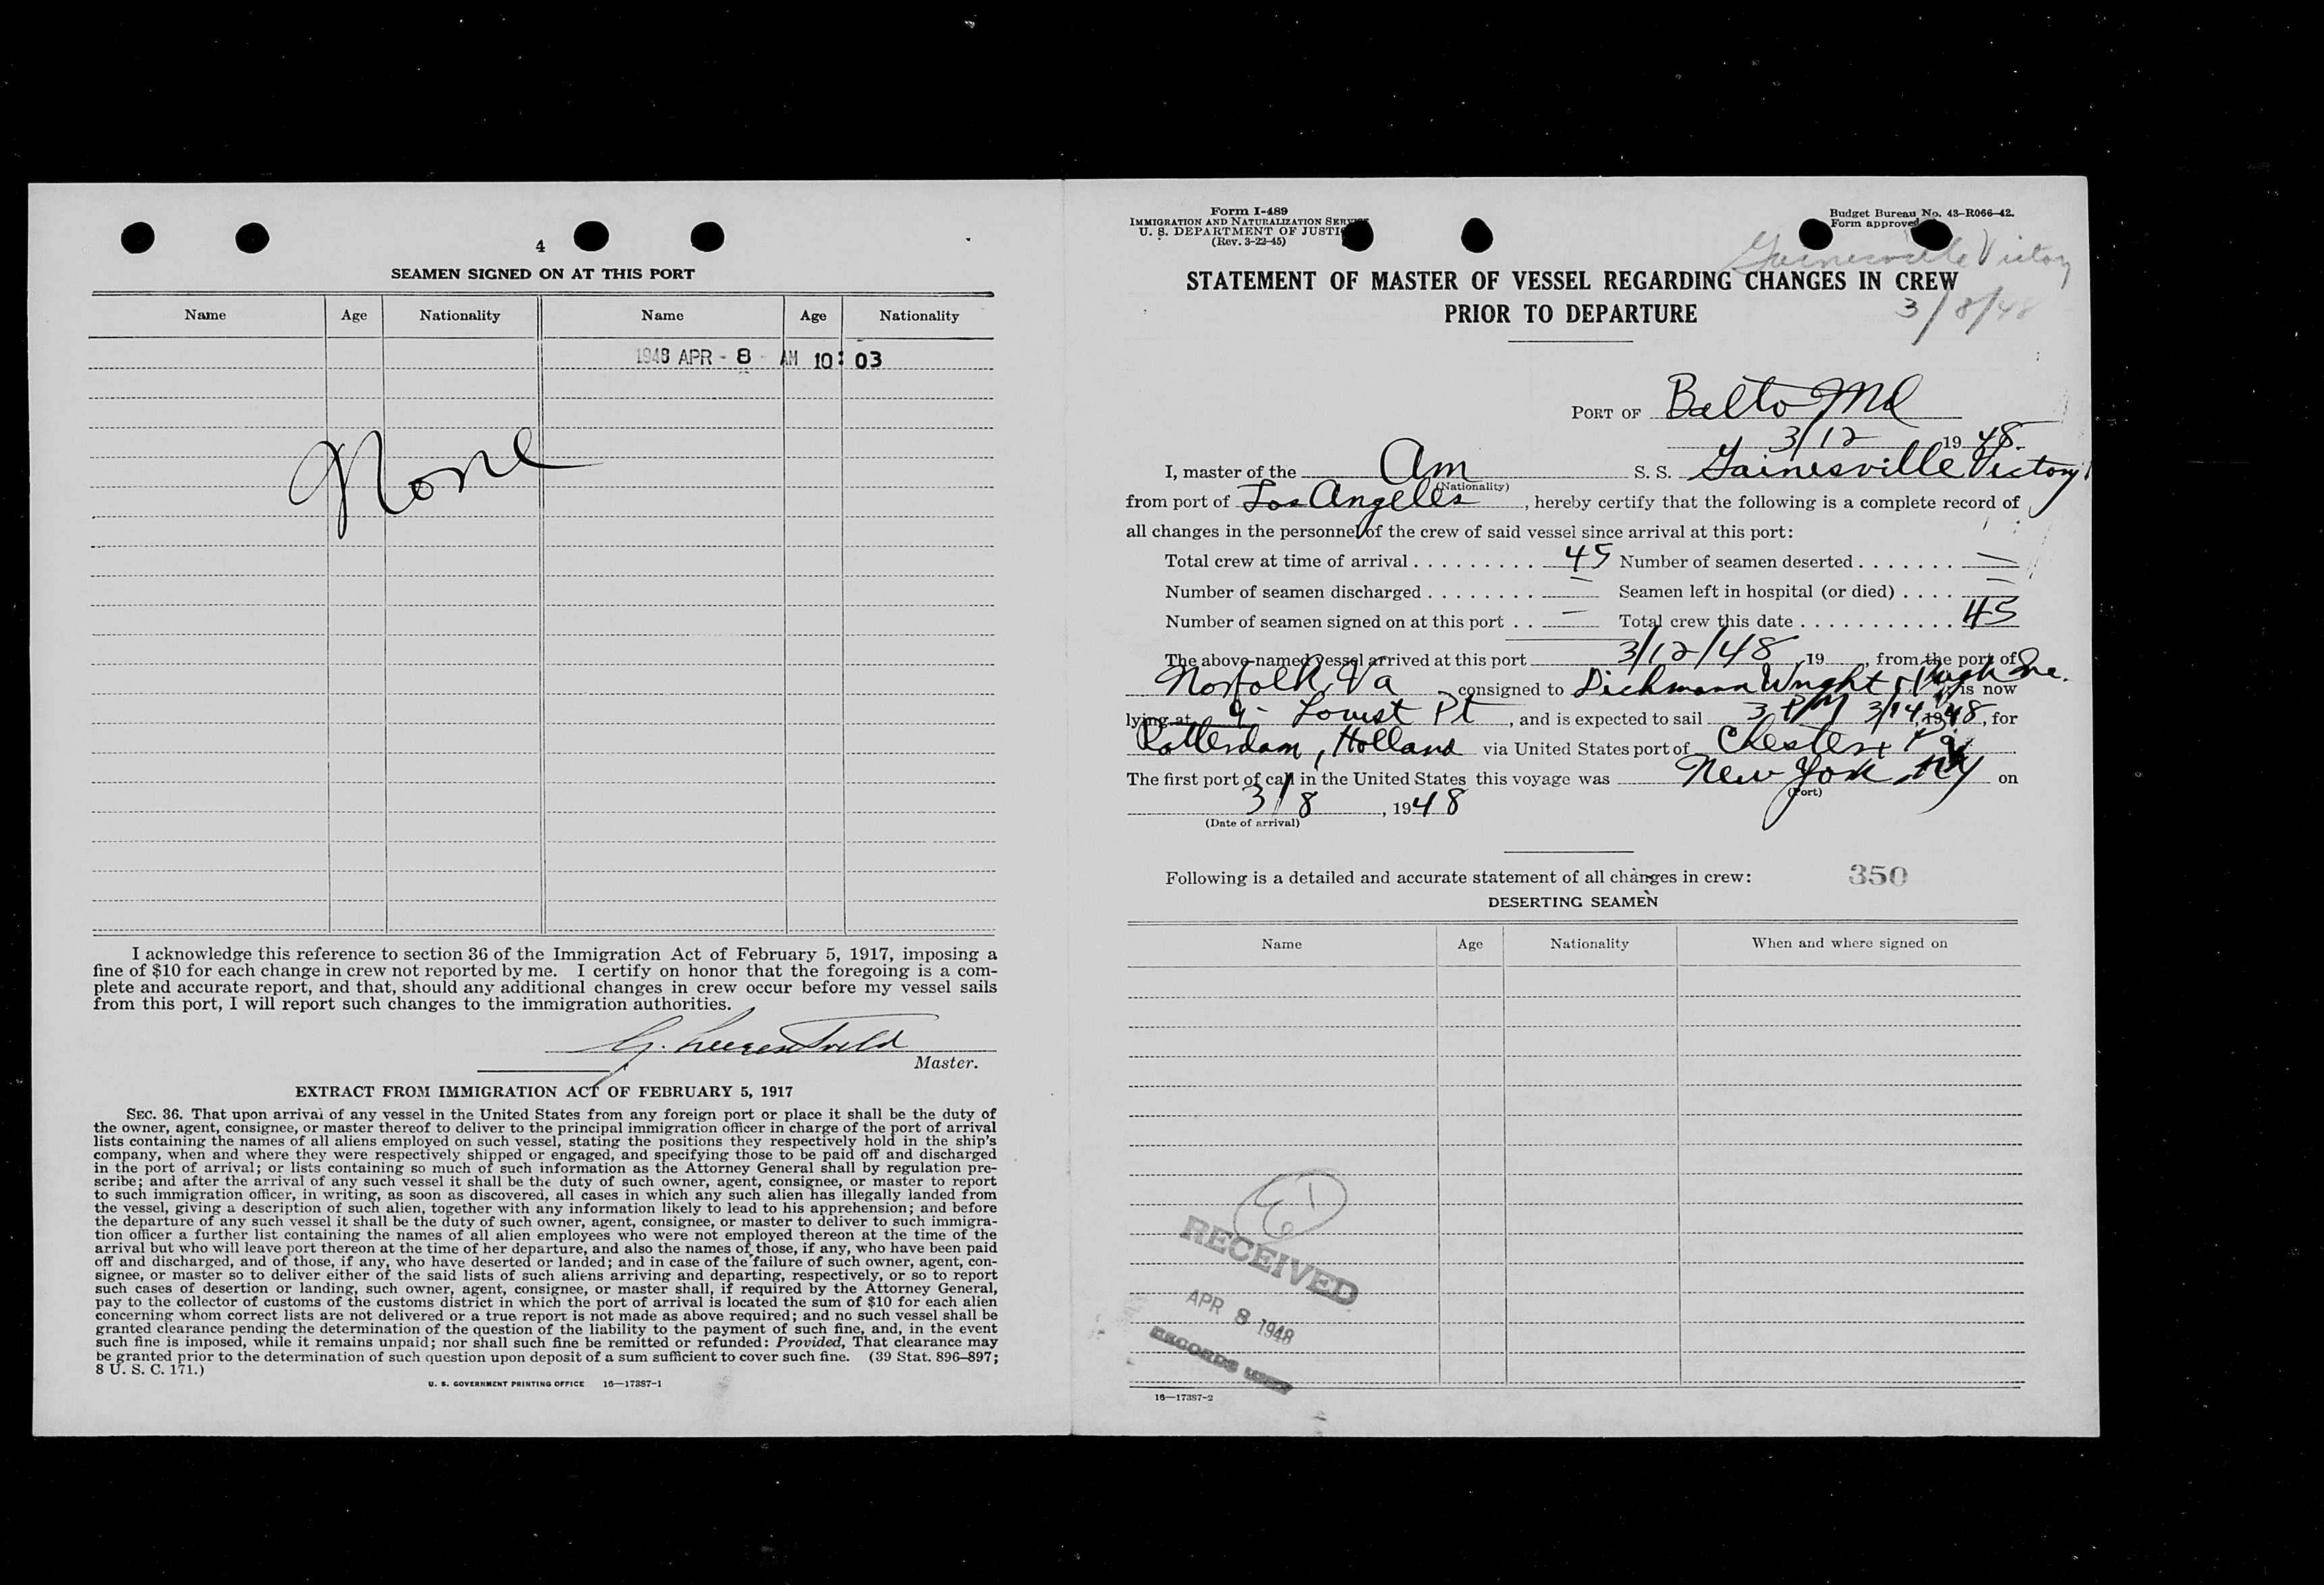 4
SEAMEN SIGNED ON AT THIS PORT
Name Age Nationality Name Age Nationality
1948 APR - 8 - AM 10: 03
None
I acknowledge this reference to section 36 of the Immigration Act of February 5, 1917, imposing a
fine of $10 for each change in crew not reported by me. I certify on honor that the foregoing is a com-
plete and accurate report, and that, should any additional changes in crew occur before my vessel sails
from this port, I will report such changes to the immigration authorities.
Master.
EXTRACT FROM IMMIGRATION ACT OF FEBRUARY 5, 1917
SEC. 36. That upon arrival of any vessel in the United States from any foreign port or place it shall be the duty of
the owner, agent, consignee, or master thereof to deliver to the principal immigration officer in charge of the port of arrival
lists containing the names of all aliens employed on such vessel, stating the positions they respectively hold in the ship's
company, when and where they were respectively shipped or engaged, and specifying those to be paid off and discharged
in the port of arrival; or lists containing so much of such information as the Attorney General shall by regulation pre-
scribe; and after the arrival of any such vessel it shall be the duty of such owner, agent, consignee, or master to report
to such immigration officer, in writing, as soon as discovered, all cases in which any such alien has illegally landed from
the vessel, giving a description of such alien, together with any information likely to lead to his apprehension; and before
the departure of any such vessel it shall be the duty of such owner, agent, consignee, or master to deliver to such immigra-
tion officer a further list containing the names of all alien employees who were not employed thereon at the time of the
arrival but who will leave port thereon at the time of her departure, and also the names of those, if any, who have been paid
off and discharged, and of those, if any, who have deserted or landed; and in case of the failure of such owner, agent, con-
signee, or master so to deliver either of the said lists of such aliens arriving and departing, respectively, or so to report
such cases of desertion or landing, such owner, agent, consignee, or master shall, if required by the Attorney General,
pay to the collector of customs of the customs district in which the port of arrival is located the sum of $10 for each alien
concerning whom correct lists are not delivered or a true report is not made as above required; and no such vessel shall be
granted clearance pending the determination of the question of the liability to the payment of such fine, and, in the event
such fine is imposed, while it remains unpaid; nor shall such fine be remitted or refunded: Provided, That clearance may
be granted prior to the determination of such question upon deposit of a sum sufficient to cover such fine. (39 Stat. 896–897;
8 U. S. C. 171.)
U. S. GOVERNMENT PRINTING OFFICE 16—17387-1
Form I-489
IMMIGRATION AND NATURALIZATION SERVICE
U. S. DEPARTMENT OF JUSTI
(Rev. 3-22-45)
Budget Bureau No. 43-R066-42.
Form approved
Gainesville Victory
3/8/48
STATEMENT OF MASTER OF VESSEL REGARDING CHANGES IN CREW
PRIOR TO DEPARTURE
PORT OF Balto Md
3/12 1948
I, master of the Am S. S. Gainesville Victory
(Nationality)
from port of Los Angeles, hereby certify that the following is a complete record of
all changes in the personnel of the crew of said vessel since arrival at this port:
Total crew at time of arrival . . . . . . . . . 45 Number of seamen deserted . . . . . . . —
Number of seamen discharged . . . . . . . . — Seamen left in hospital (or died) . . . . —
Number of seamen signed on at this port . . — Total crew this date . . . . . . . . . . . . 45
The above-named vessel arrived at this port 3/12/48, 19 , from the port of
Norfolk, Va consigned to Dichmann Wright & Pugh Inc. is now
lying at 9 - Locust Pt, and is expected to sail 3 PM 3/14, 1948, for
Rotterdam, Holland via United States port of Chester, Pa
The first port of call in the United States this voyage was New York NY on
(Port)
3/8, 1948
(Date of arrival)
Following is a detailed and accurate statement of all changes in crew: 350
DESERTING SEAMEN
Name Age Nationality When and where signed on
RECEIVED
APR 8 1948
RECORDS
16—17387-2